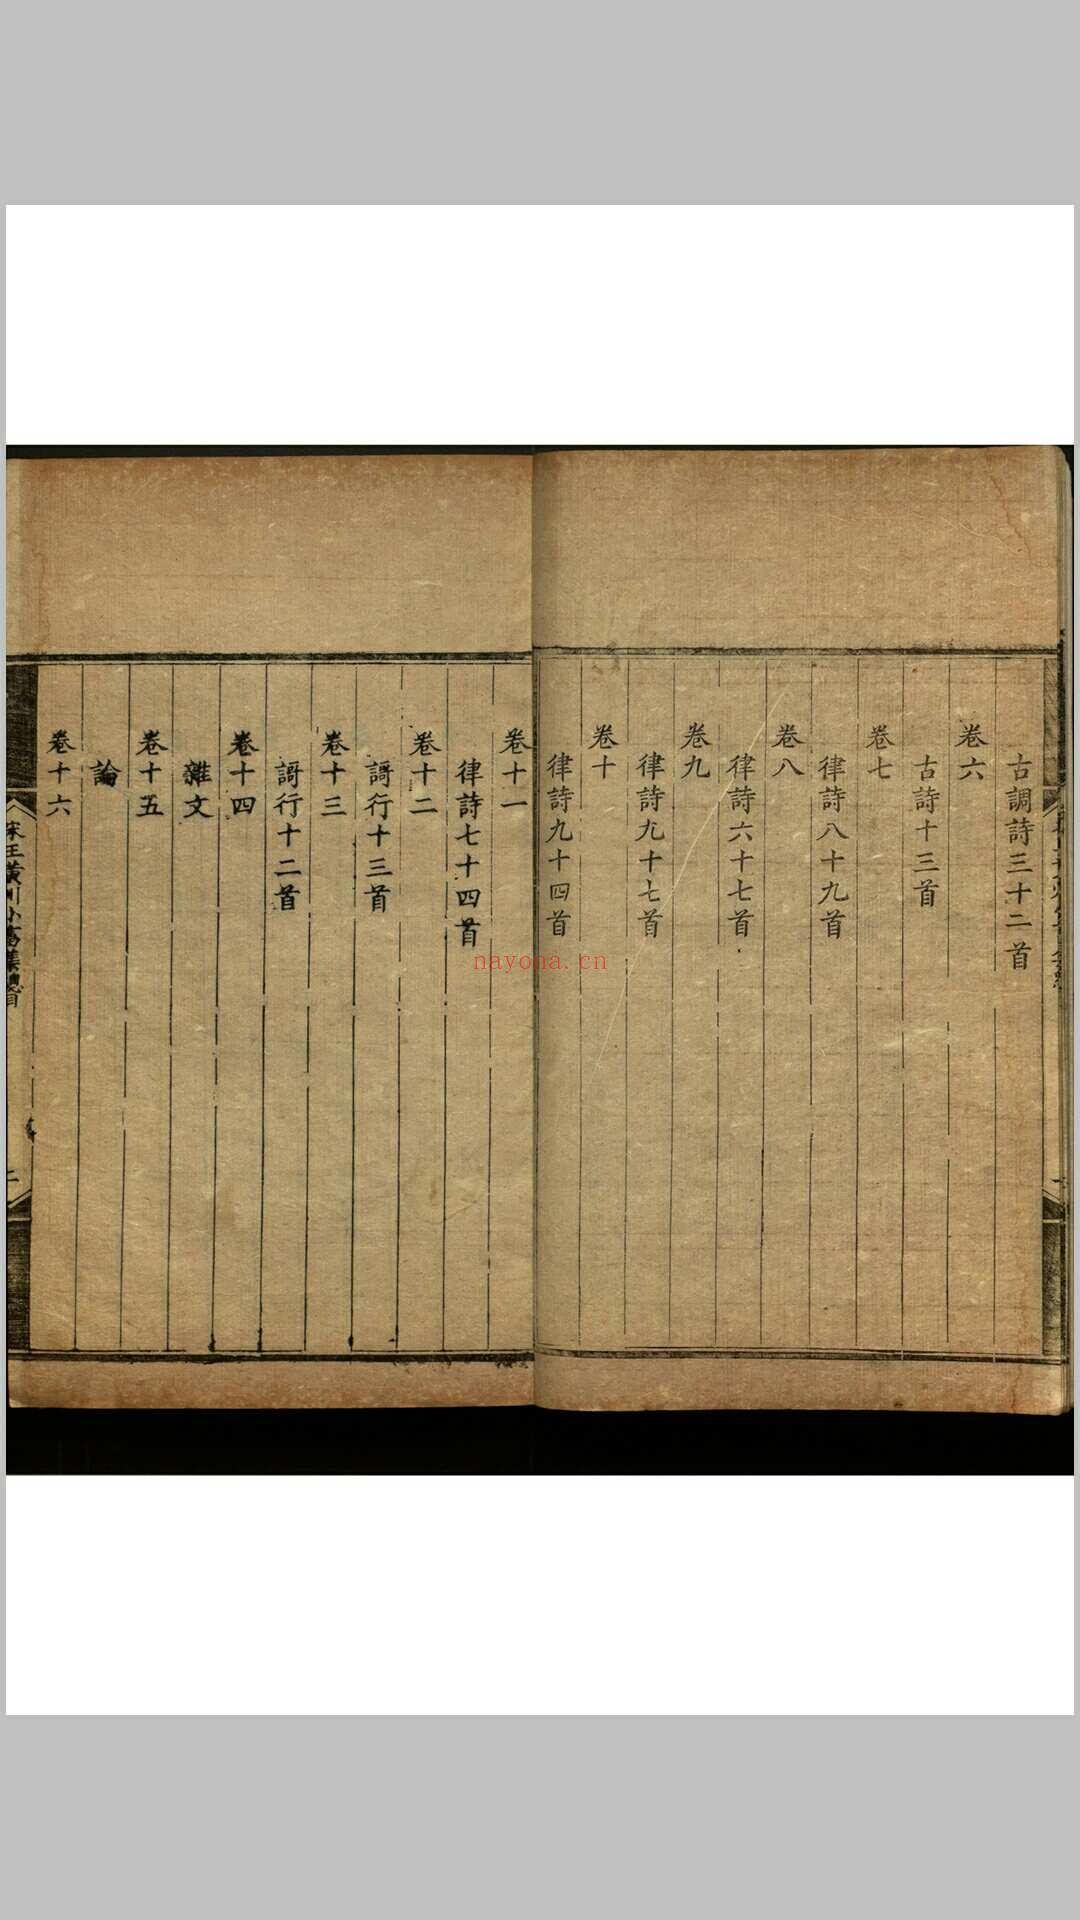 古調詩三十二首
卷六
古詩十三首
卷七
律詩八十九首
卷八
律詩六十七首
卷九
律詩九十七首
卷十
律詩九十四首
卷十一
律詩七十四首
卷十二
謌行十三首
卷十三
謌行十二首
卷十四
雜文
卷十五
論
卷十六
宋王黃州小畜集總目
二
nayona.cn